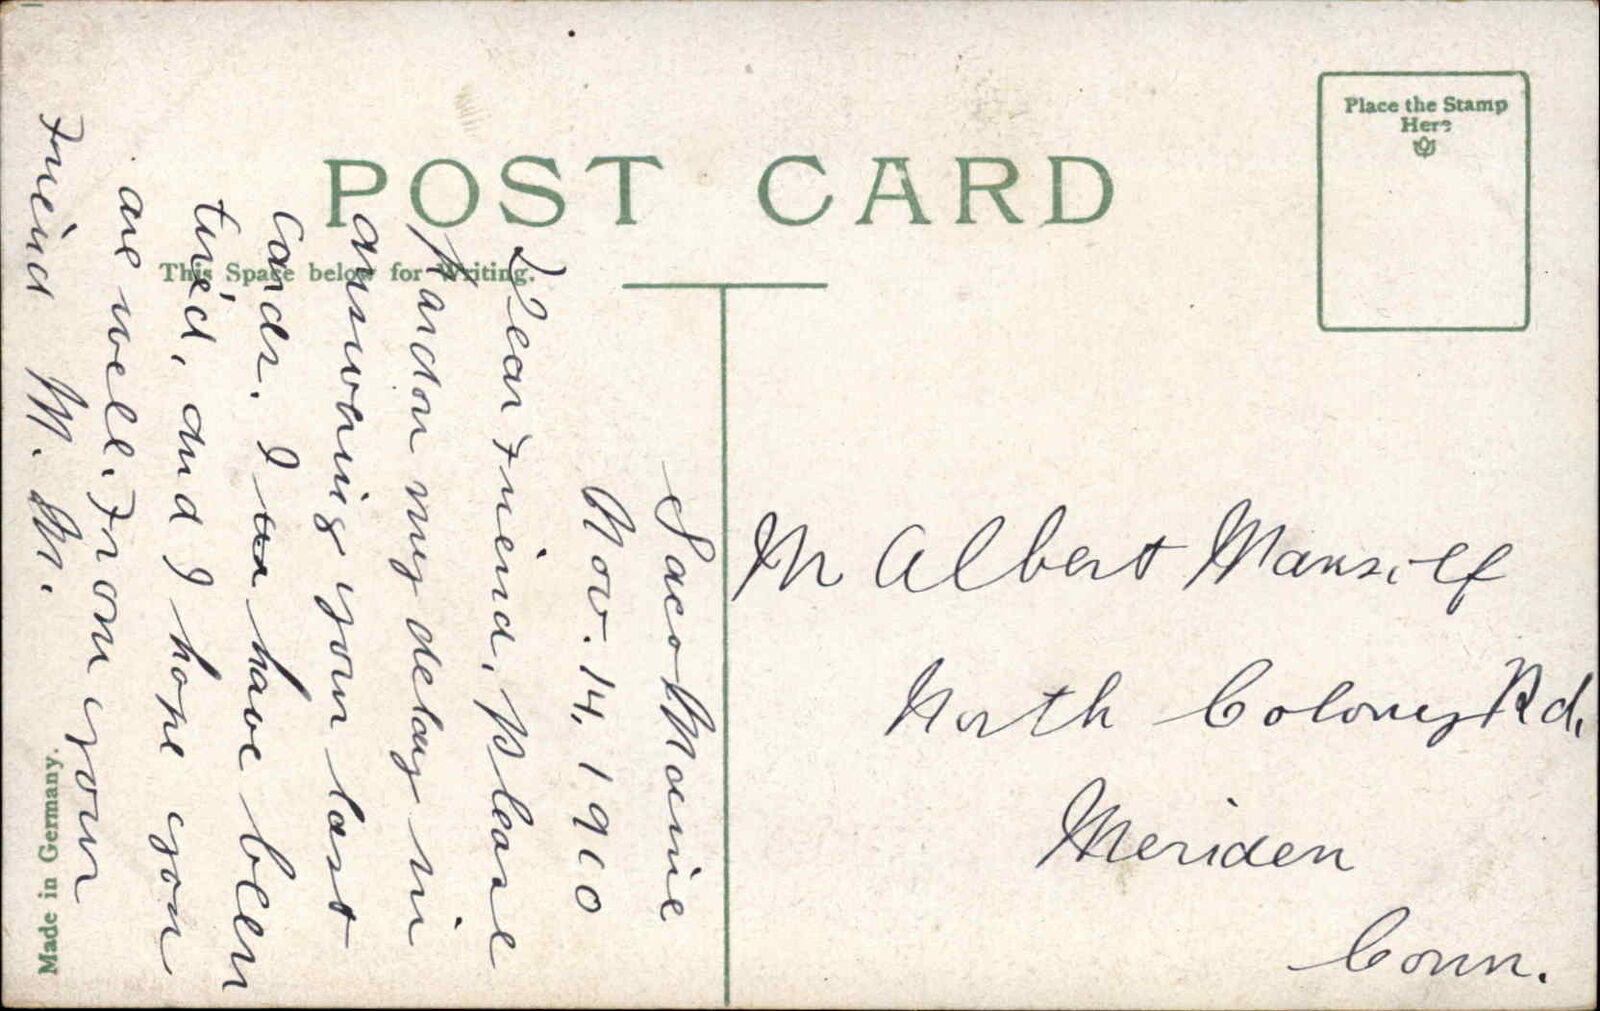 POST CARD
Place the Stamp
Here
This Space below for Writing.
Saco Maine
Nov. 14, 1910
Dear Friend, Please
pardon my delay in
answering your last
cards. I have been
tired, and I hope you
are well. From your
Freind M. M.
M Albert
North Colony Rd.
Meriden
Conn.
Made in Germany.